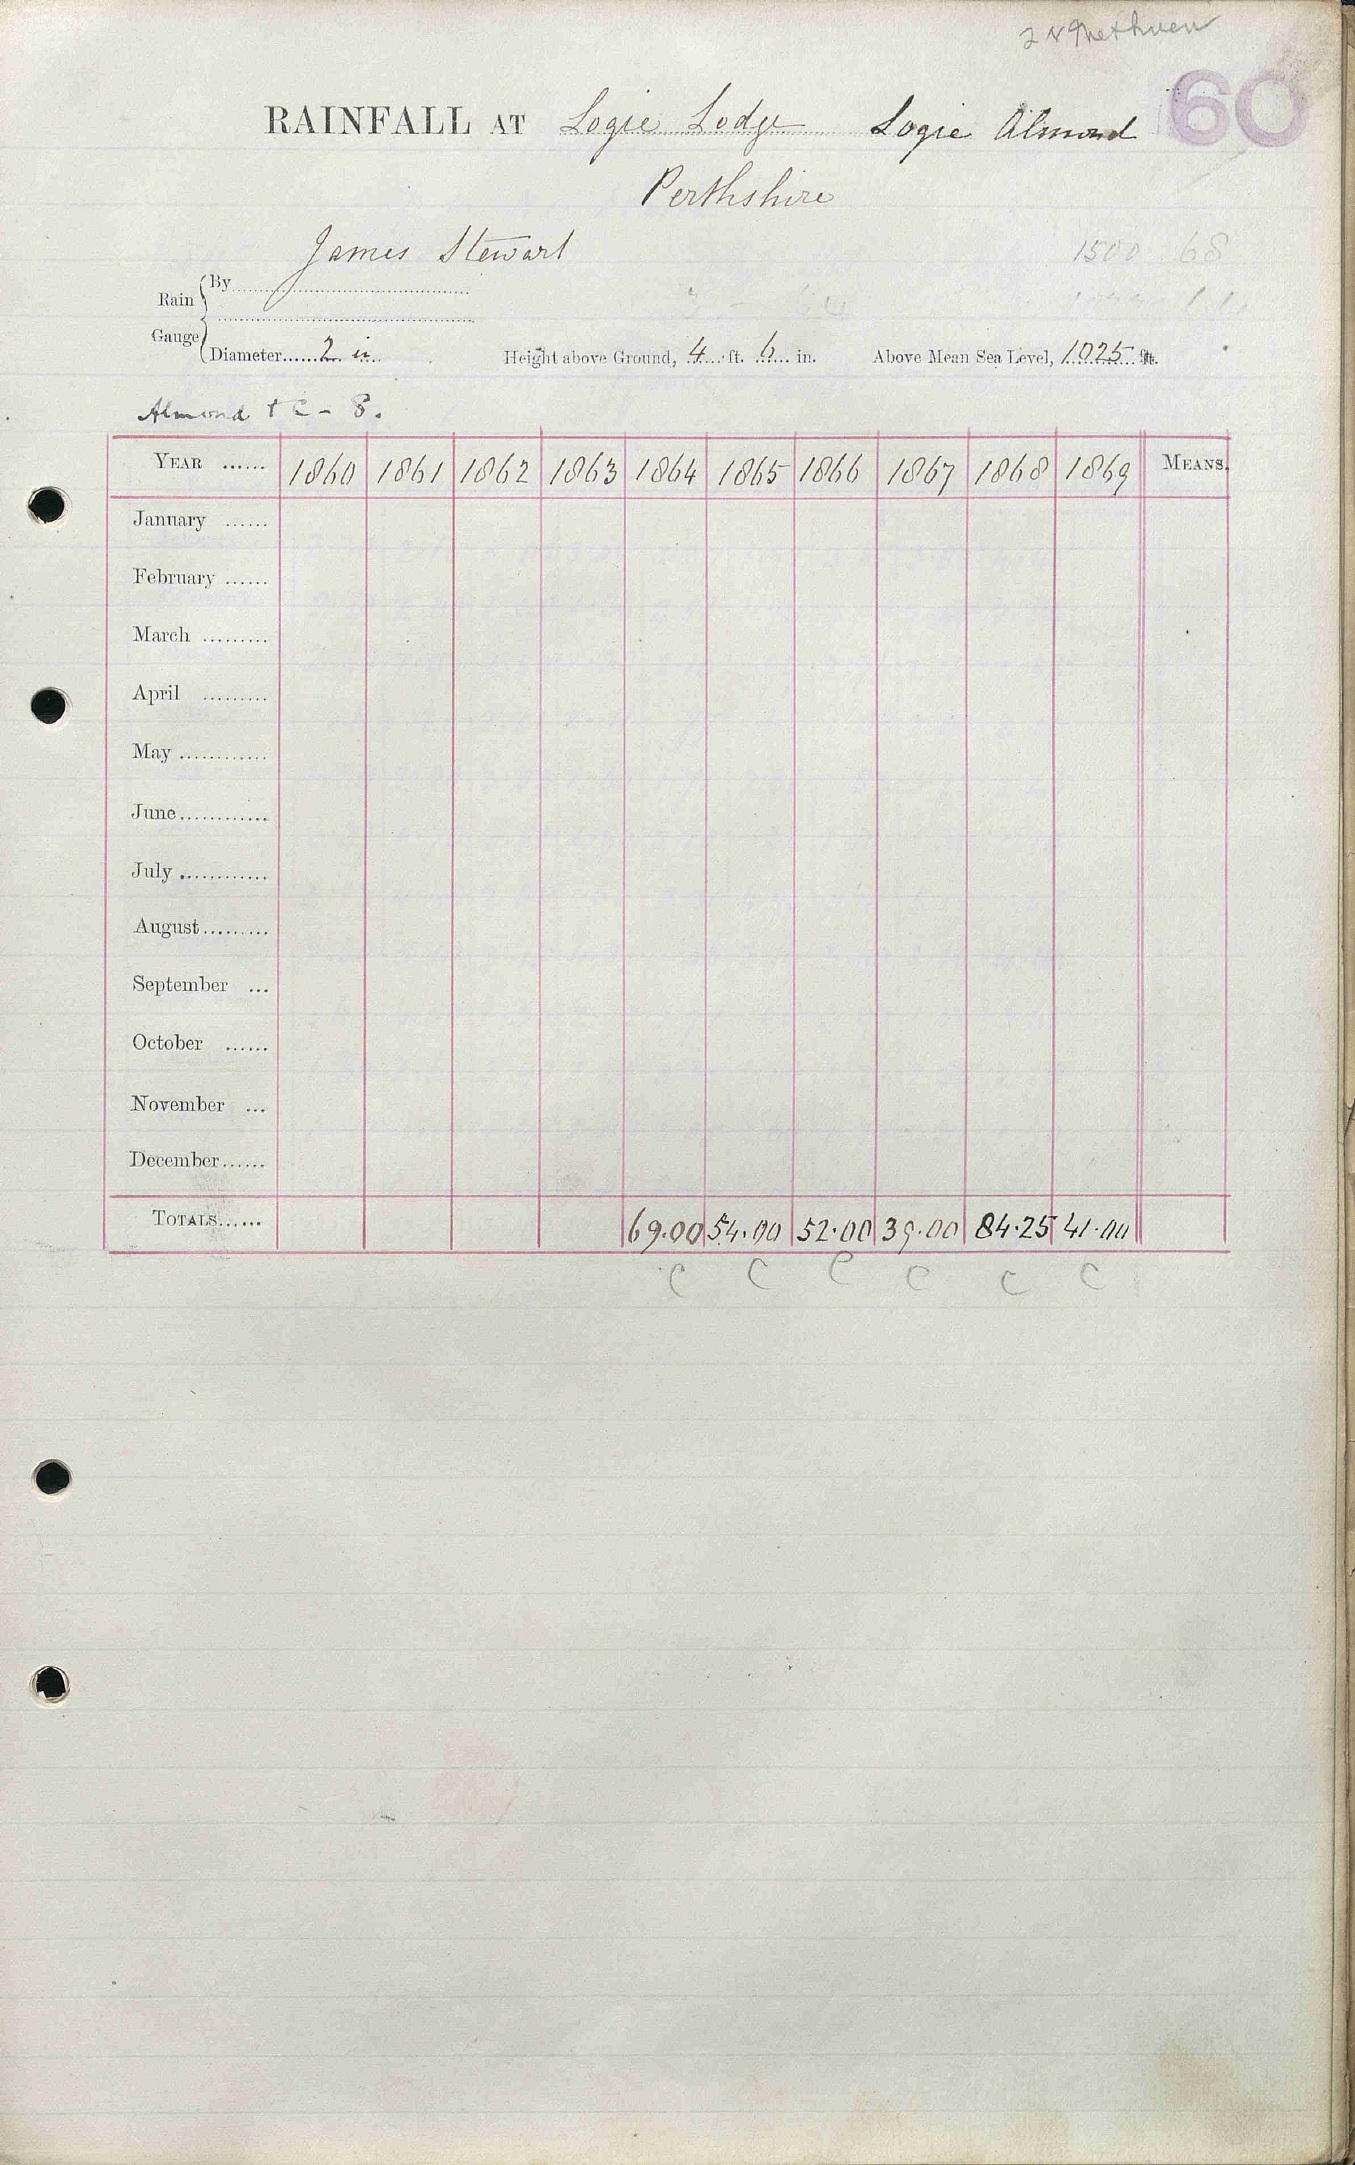 60
RAINFALL AT Logie Lodge Logie Almond
Perthshire
James Stewart
1500 68
Rain Gauge
By
Diameter......2 in... Height above Ground, 4 ft. 6 in. Above Mean Sea Level, 1025 ft.
Almond
YEAR ...... 1860 1861 1862 1863 1864 1865 1866 1867 1868 1869 MEANS.
January ......
February ......
March .........
April .........
May ............
June............
July ............
August.........
September ...
October ......
November ...
December......
TOTALS...... 69.00 54.00 52.00 39.00 84.25 41.00
C C C C C C